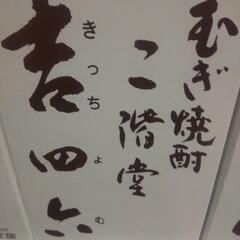 むぎ焼酎
二階堂
吉四六
きっちょむ